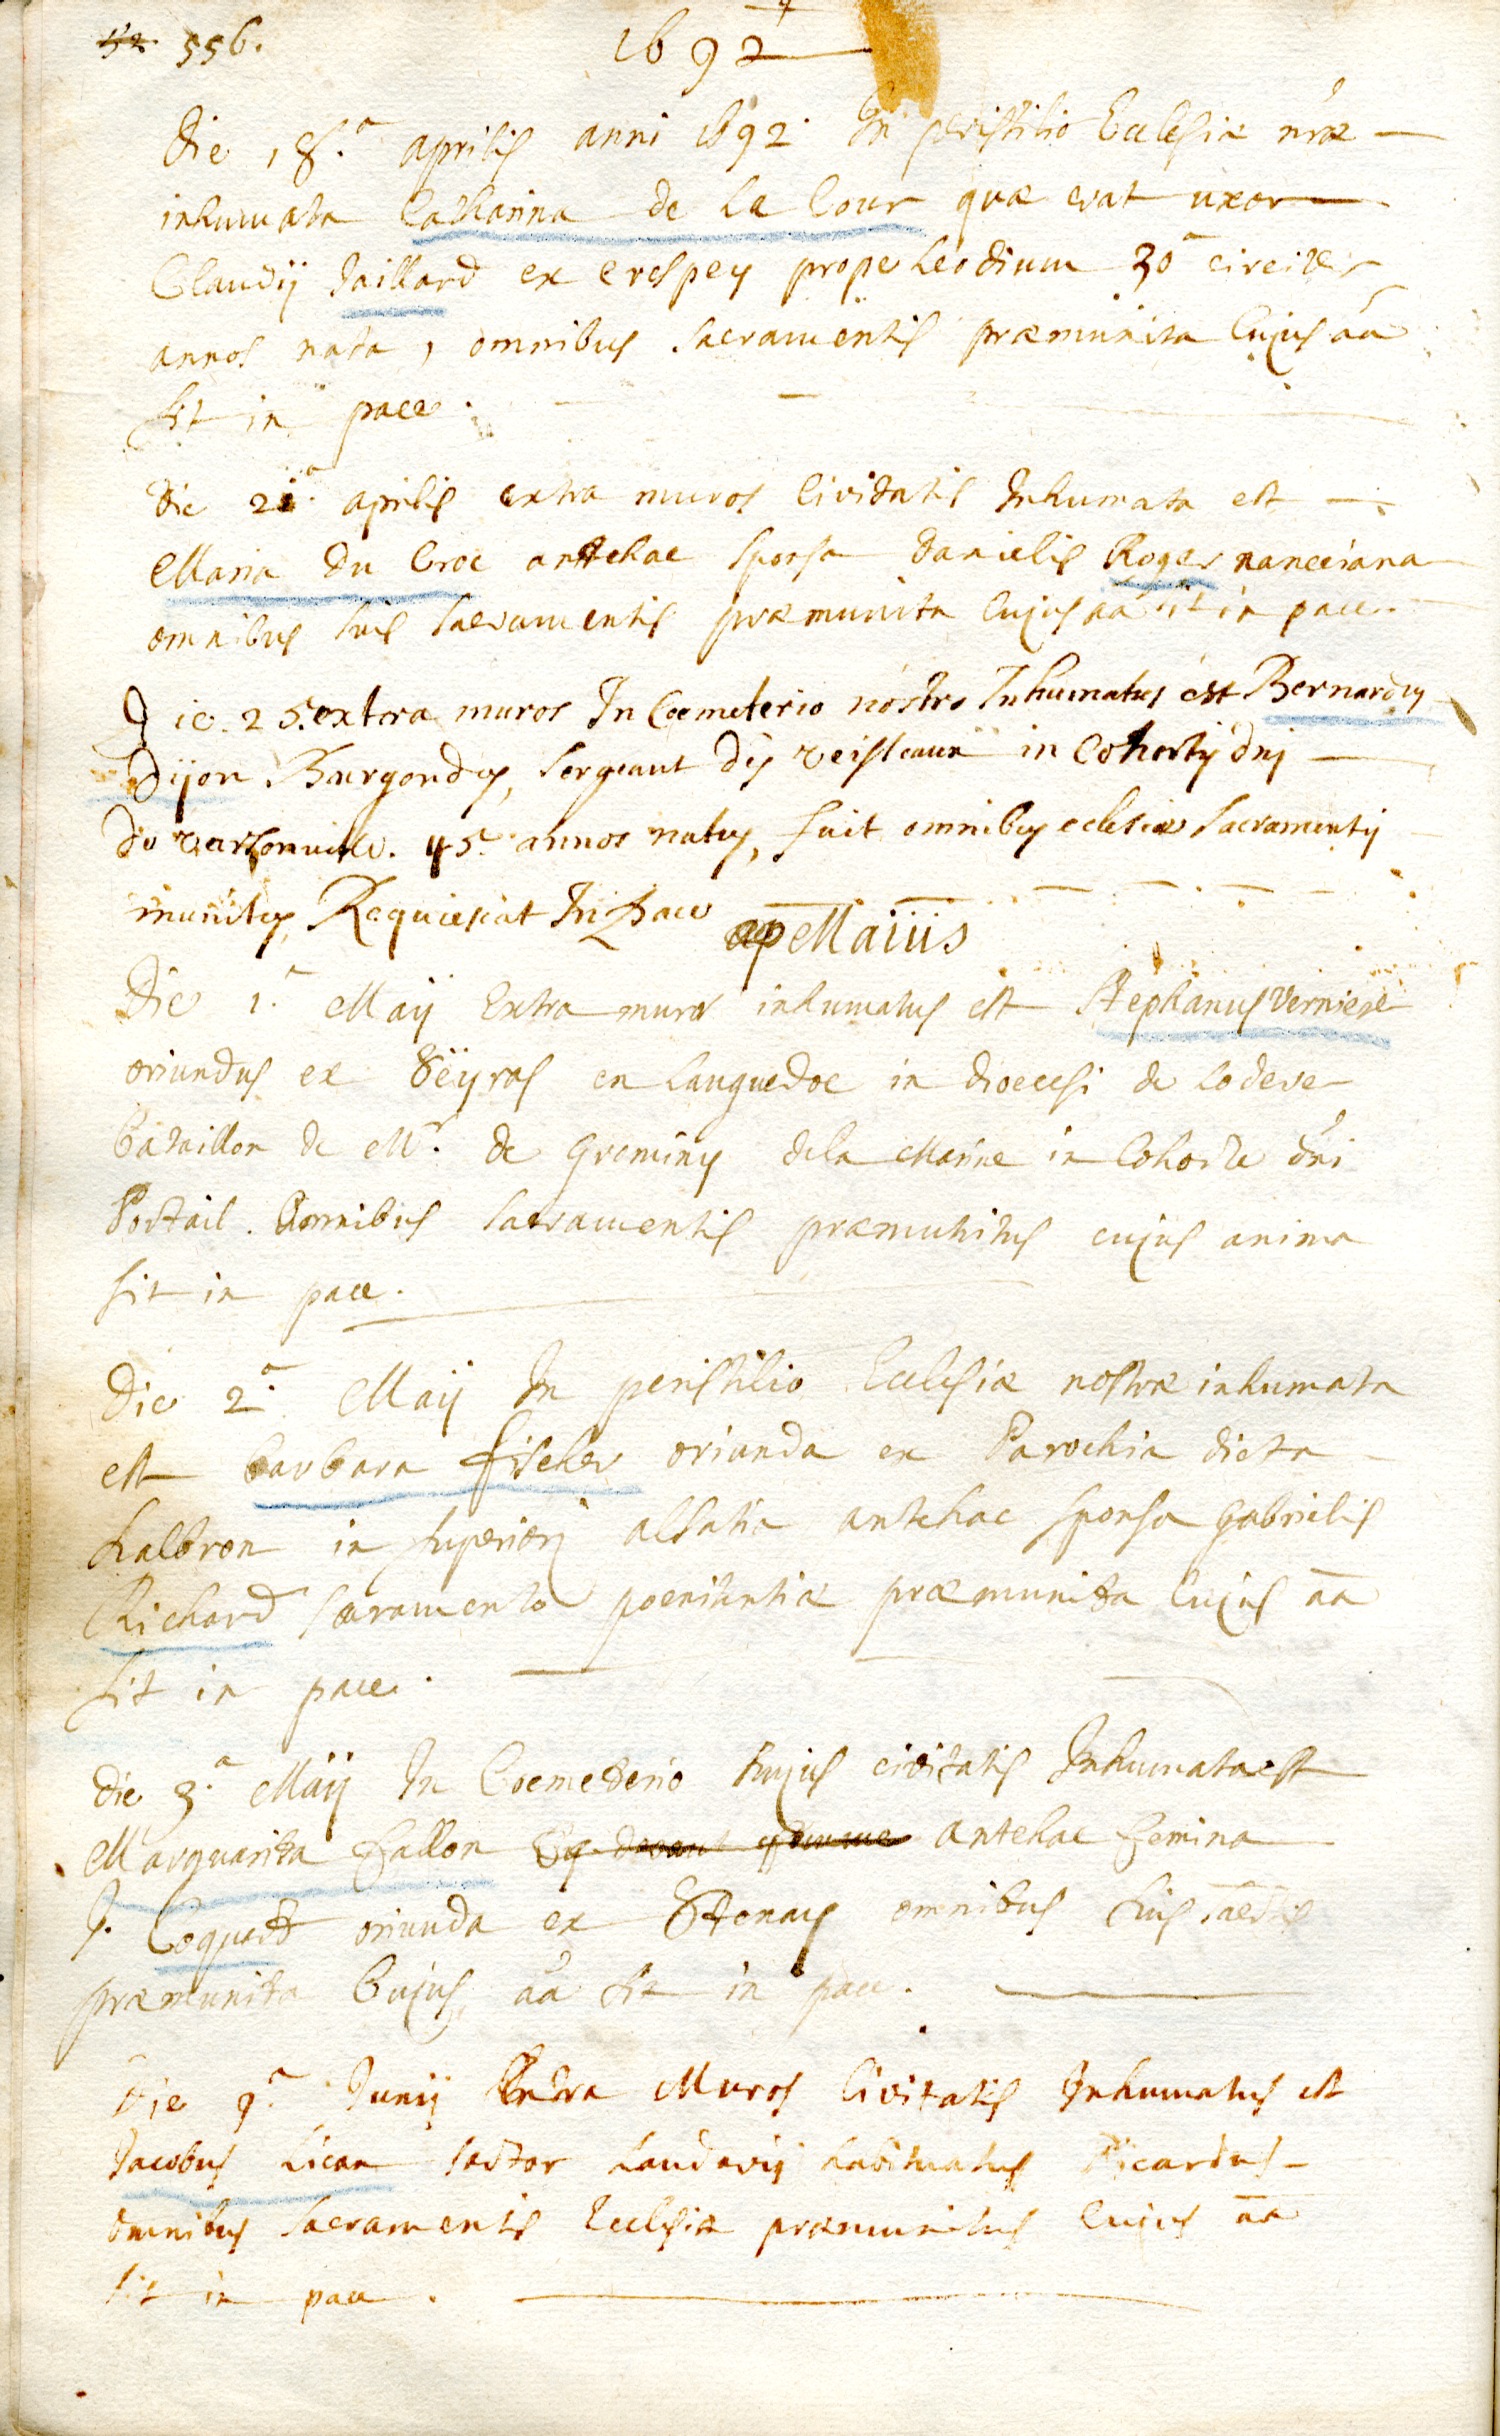 52. 556.
1692
Die 18.a aprilis anni 1692. In peristilio Ecclesiæ nræ
inhumata Catharina de La Cour quæ erat uxor
Claudij Jaillard ex crespey prope Leodium 30 circiter
annos nata, omnibus sacramentis præmunita Cujus aa
sit in pace.
Die 21.a aprilis extra muros Civitatis Inhumata est
Maria du Croc antehac sponsa danielis Roger nanceiana
omnibus suis sacramentis præmunita Cujus aa sit in pace.
Die. 25. extra muros In Coemeterio nostro Inhumatus est Bernardus
Dijon. Burgondus, sergeant des in Cohorti dni
45. annos natus, fuit omnibus ecclesiæ sacramentis
munitus, Requiescat In Pace
Maiiis
Die 1.a Maij Extra muros inhumatus est Stephanus Verniere
oriundus ex en Languedoc in dioecesi de Lodeve
Bataillon de Mr. de Greminy dela Marine in Cohorte dni
Portail. Omnibus sacramentis præmunitus cujus anima
sit in pace.
Die 2.a Maij In peristilio Ecclesiæ nostræ inhumata
est barbara fischer oriunda ex Parochia dicta
Kalbron in superiori alsatia antehac sponsa gabrielis
Richard sacramento poenitentiæ præmunita Cujus aa
sit in pace.
Die 3.a Maij In Coemeterio hujus civitatis Inhumata est
Marguarita fallon antehac femina
J. Coquart oriunda ex Stenay omnibus suis
præmunita Cujus aa sit in pace.
Die 9.a Junij Extra Muros Civitatis Inhumatus est
Jacobus Lican sartor Landavij habituatus Picardus
omnibus sacramentis Ecclesiæ præmunitus Cujus aa
sit in pace.